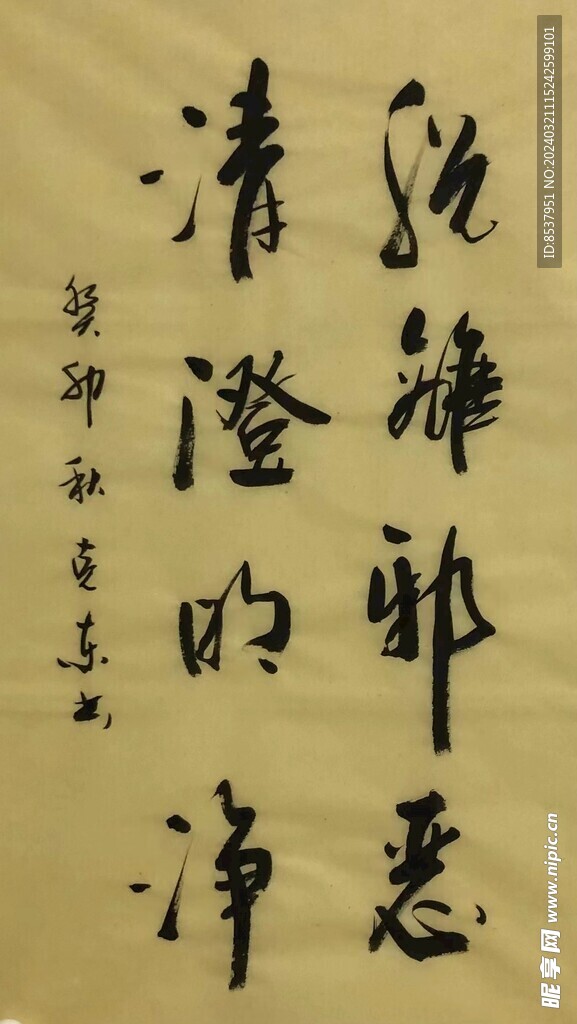 脱離邪惡
清澄明净
癸卯秋克东书
ID:8537951 NO:20240321115242599101
昵享网 www.nipic.cn